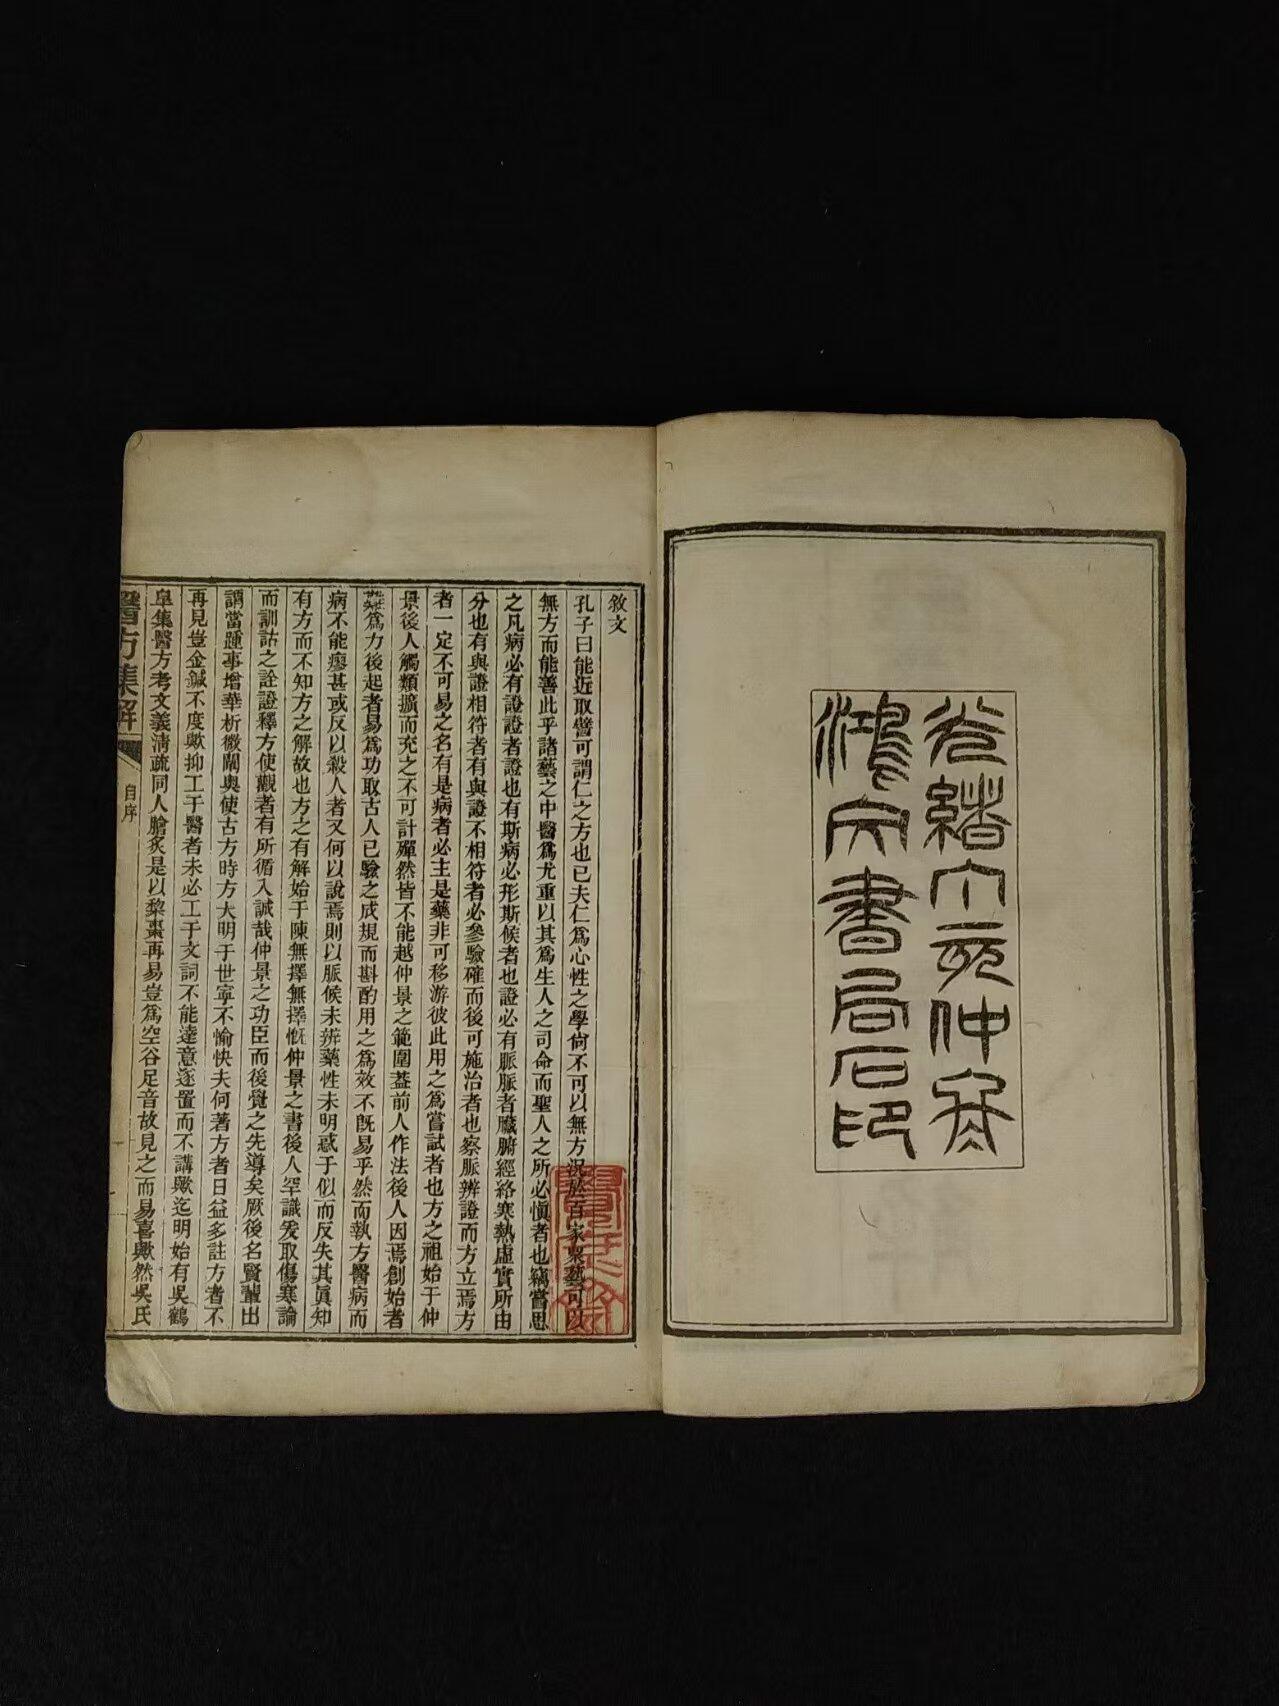 光緒丁亥仲冬
鴻文書局石印
敘文
孔子曰能近取譬可謂仁之方也已夫仁為心性之學尙不可以無方況於百家衆藝可以
無方而能善此乎諸藝之中醫爲尤重以其爲生人之司命而聖人之所必愼者也竊嘗思
之凡病必有證證者證也有斯病必形斯候者也證必有脈脈者臟腑經絡寒熱虛實所由
分也有與證相符者有與證不相符者必參驗確而後可施治者也察脈辨證而方立焉方
者一定不可易之名有是病者必主是藥非可移游彼此用之爲嘗試者也方之祖始于仲
景後人觸類擴而充之不可計殫然皆不能越仲景之範圍蓋前人作法後人因焉創始者
難爲力後起者易爲功取古人已驗之成規而斟酌用之爲效不旣易乎然而執方醫病而
病不能瘳甚或反以殺人者又何以說焉則以脈候未辨藥性未明惑于似而反失其眞知
有方而不知方之解故也方之有解始于陳無擇無擇慨仲景之書後人罕識爰取傷寒論
而訓詁之詮證釋方使觀者有所循入誠哉仲景之功臣而後覺之先導矣厥後名賢輩出
謂當踵事增華析微闡奥使古方時方大明于世寧不愉快夫何著方者日益多註方者不
再見豈金鍼不度歟抑工于醫者未必工于文詞不能達意遂置而不講歟迄明始有吳鶴
皐集醫方考文義淸疏同人膾炙是以棃棗再易豈爲空谷足音故見之而易喜歟然吳氏
醫方集解
自序